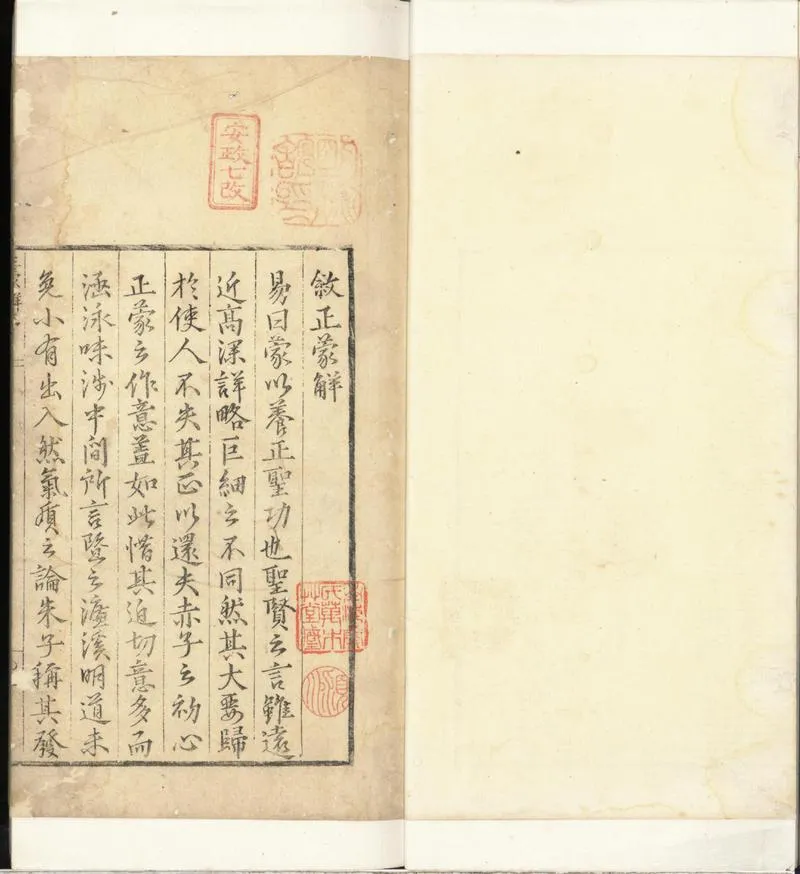 安政七改
敘正蒙解
易曰蒙以養正聖功也聖賢之言雖遠
近高深詳略巨細之不同然其大要歸
於使人不失其正以還夫赤子之初心
正蒙之作意蓋如此惜其迫切意多而
涵泳味涉中間所言暨之濂溪明道未
免小有出入然氣質之論朱子稱其發